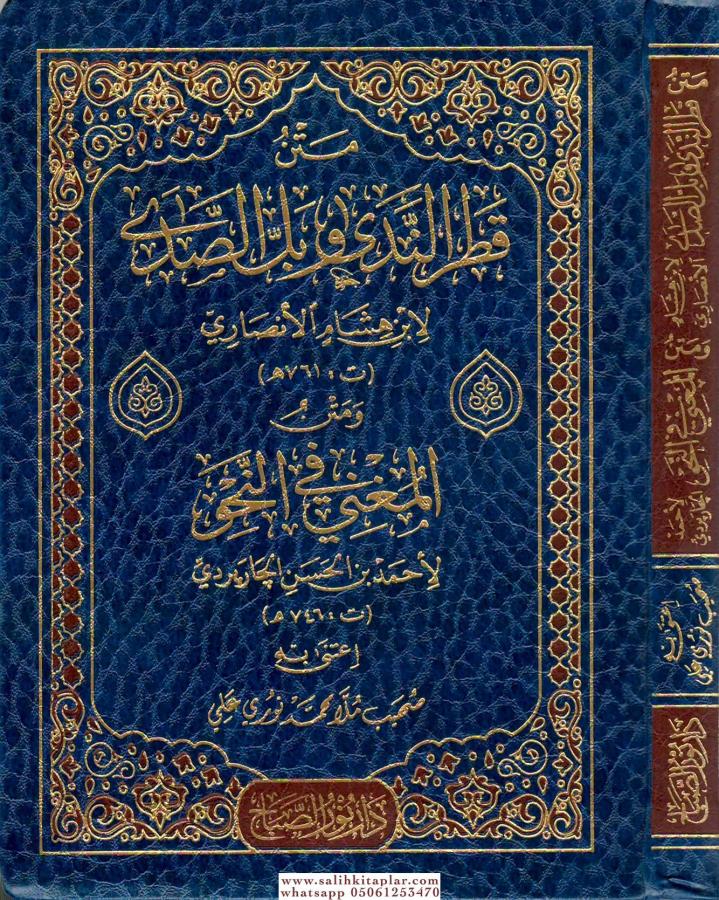 متن
قطر الندى وبل الصدى
لابن هشام الأنصاري
(ت: ٧٦١ هـ)
ومتن
المغني في النحو
لأحمد بن الحسن الجاربردي
(ت: ٧٤٦ هـ)
اعتنى به
صهيب ملا محمد نوري علي
دار نور الصباح
متن قطر الندى وبل الصدى لابن هشام الأنصاري متن المغني في النحو لأحمد الجاربردي
اعتنى به
صهيب نوري علي
دار نور الصباح
www.salihkitaplar.com
whatsapp 05061253470